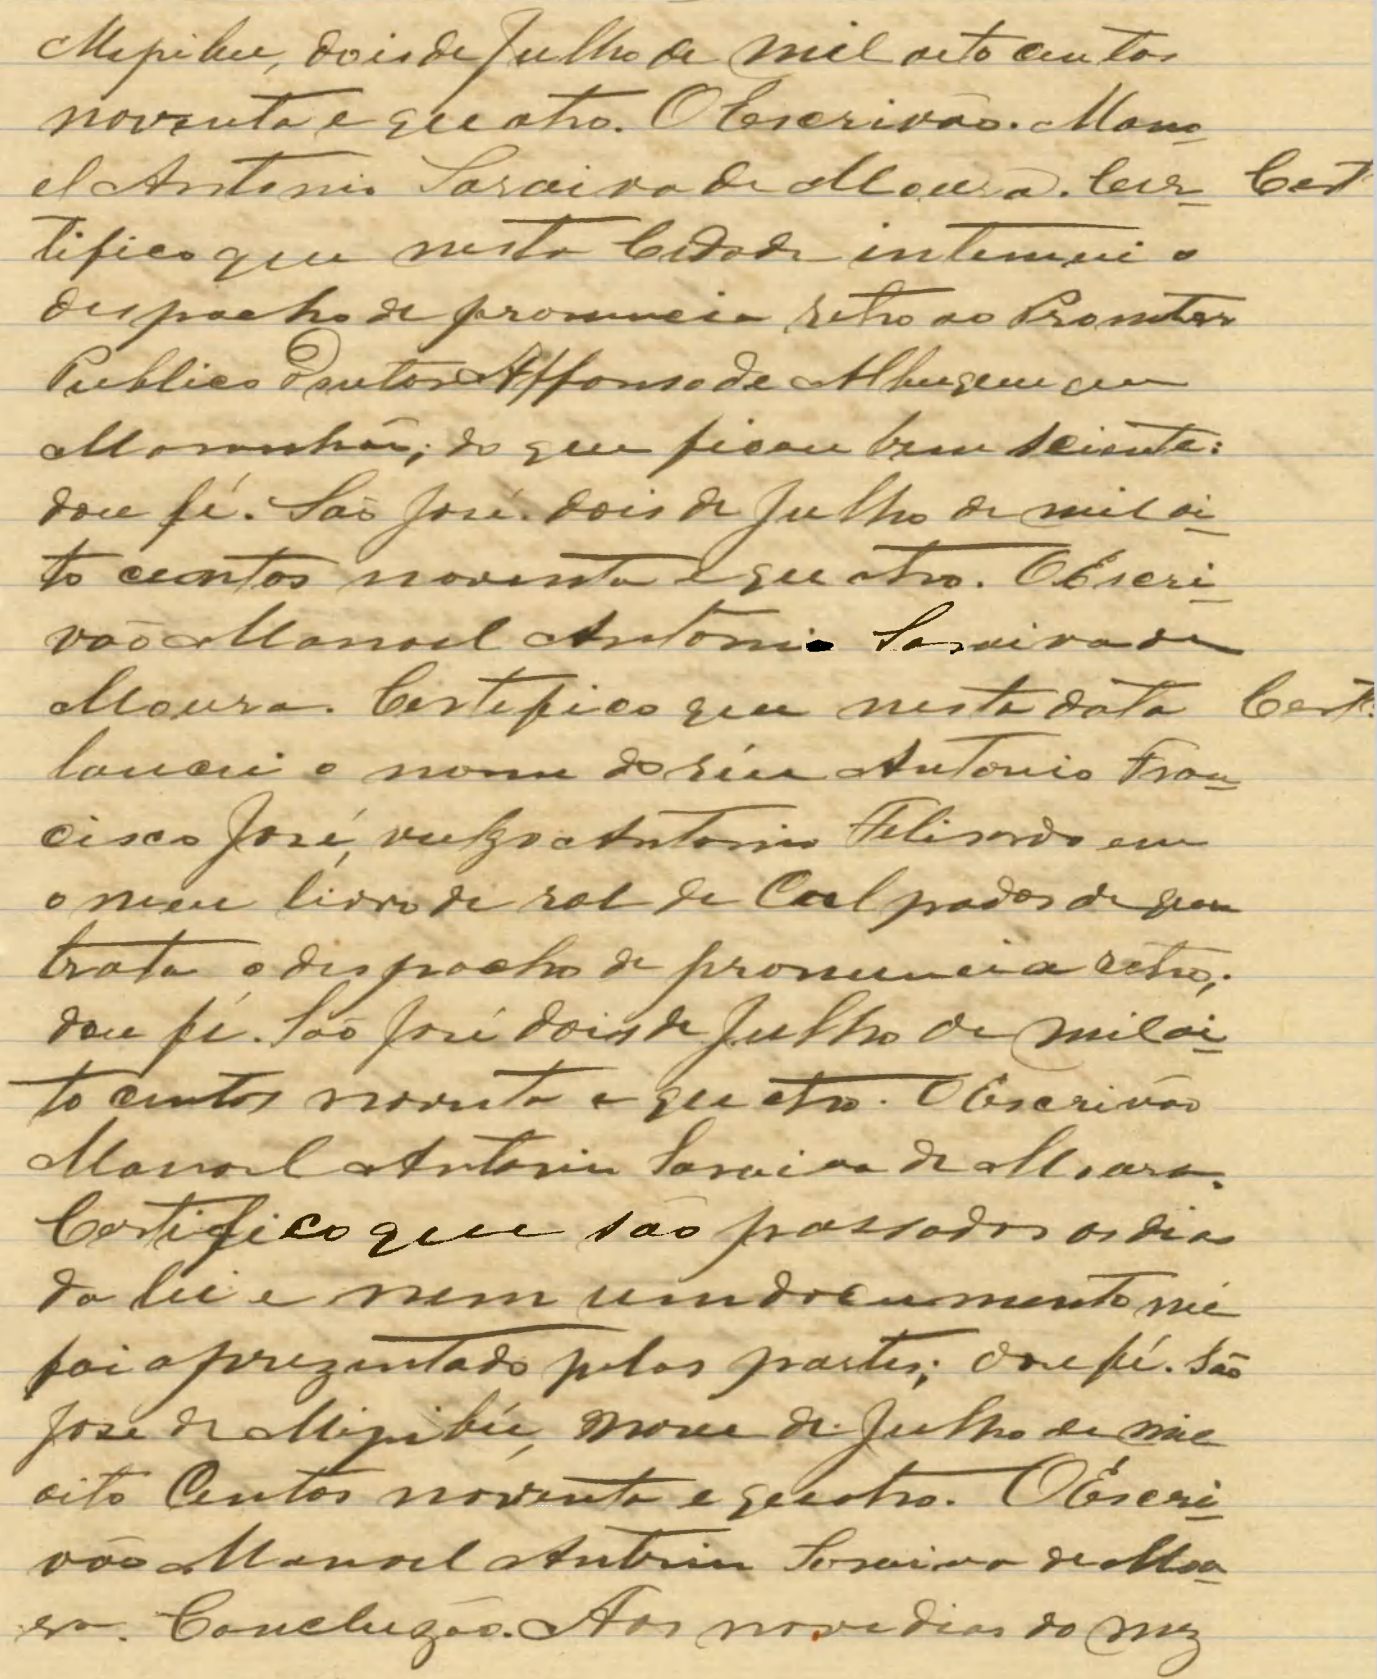 Mipibu, dois de Julho de mil oito centos
noventa e quatro. O Escrivão. Mano
el Antonio Saraiva de Moura. Cer- Cert
tifico que nesta Cidade intimei o
despacho de pronuncia retro ao Promotor
Publico Doutor Affonso de Albuquerque
Maranhão; do que ficou bem sciente:
dou fé. São José. dois de Julho de mil oi-
to centos noventa e quatro. O Escri-
vão Manoel Antonio Saraiva de
Moura. Certefico que nesta data Cert.
lancei o nome do réu Antonio Fran-
cisco José, vulgo Antonio Felisardo em
o meu livro de rol de Culpados de que
trata o despacho de pronuncia retro;
dou fé. São José dois de Julho de mil oi-
to centos noventa e quatro. O Escrivão
Manoel Antonio Saraiva de Moura.
Certifico que são passados os dias
da lei e nem um documento me
foi aprezentado pelas partes; dou fé. São
José de Mipibú, nove de Julho de mil
oito Centos noventa e quatro. O Escri-
vão Manoel Antonio Saraiva de Mou-
ra. Concluzão. Aos nove dias do mez